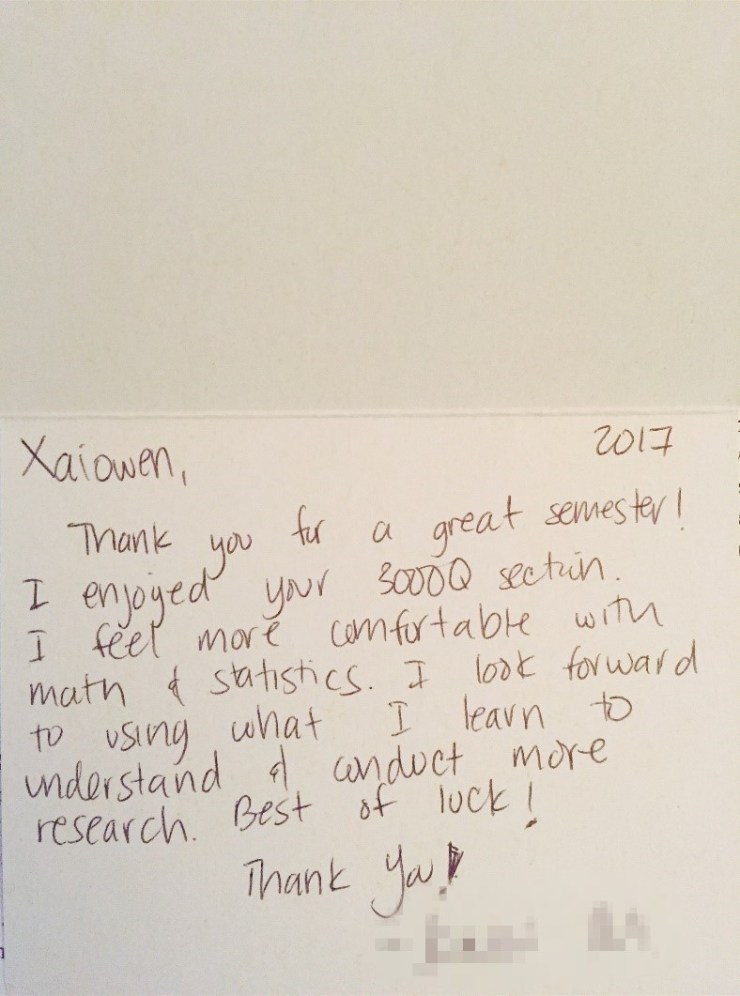 2017
Xaiowen,
Thank you for a great semester!
I enjoyed your 3000Q section.
I feel more comfortable with
math & statistics. I look forward
to using what I learn to
understand & conduct more
research. Best of luck!
Thank You!